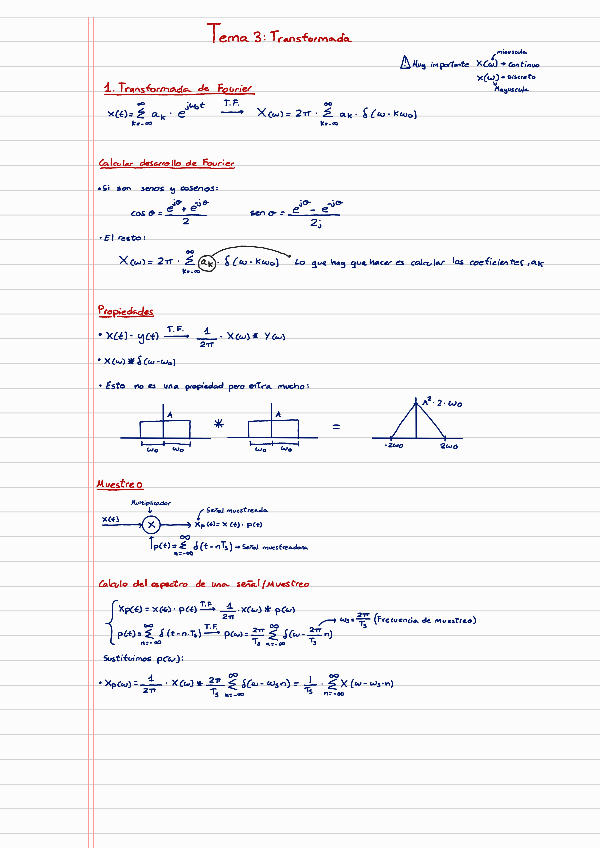 Tema 3: Transformada
⚠ Muy importante X(ω) → Continuo
minuscula
X(ω) → Discreto
Mayuscula
1. Transformada de Fourier
x(t) = ∑_{k=-∞}^{∞} a_k · e^{jω₀t} T.F. → X(ω) = 2π · ∑_{k=-∞}^{∞} a_k · δ(ω·kω₀)
Calcular desarrollo de Fourier
• Si son senos y cosenos:
cos θ = (e^{jθ} + e^{-jθ})/2 sen θ = (e^{jθ} - e^{-jθ})/2j
· El resto:
X(ω) = 2π · ∑_{k=-∞}^{∞} a_k · δ(ω·kω₀) Lo que hay que hacer es calcular los coeficientes, ak
Propiedades
• X(t) · y(t) T.F. → 1/2π · X(ω) * Y(ω)
• X(ω) * δ(ω-ω₀)
• Esto no es una propiedad pero entra mucho:
A * A = A²·2·ω₀
ω₀ ω₀ ω₀ ω₀ -2ω₀ 2ω₀
Muestreo
Multiplicador
Señal muestreada
x(t) → X → Xp(t) = x(t) · p(t)
p(t) = ∑_{n=-∞}^{∞} δ(t-nTs) → Señal muestreadora
Calculo del espectro de una señal/Muestreo
Xp(t) = x(t) · p(t) T.F. → 1/2π · X(ω) * p(ω)
p(t) = ∑_{n=-∞}^{∞} δ(t-n·Ts) T.F. → p(ω) = 2π/Ts ∑_{n=-∞}^{∞} δ(ω - 2π/Ts n) → ωs = 2π/Ts (Frecuencia de muestreo)
Sustituimos p(ω):
• Xp(ω) = 1/2π · X(ω) * 2π/Ts ∑_{n=-∞}^{∞} δ(ω-ωs·n) = 1/Ts · ∑_{n=-∞}^{∞} X(ω-ωs·n)